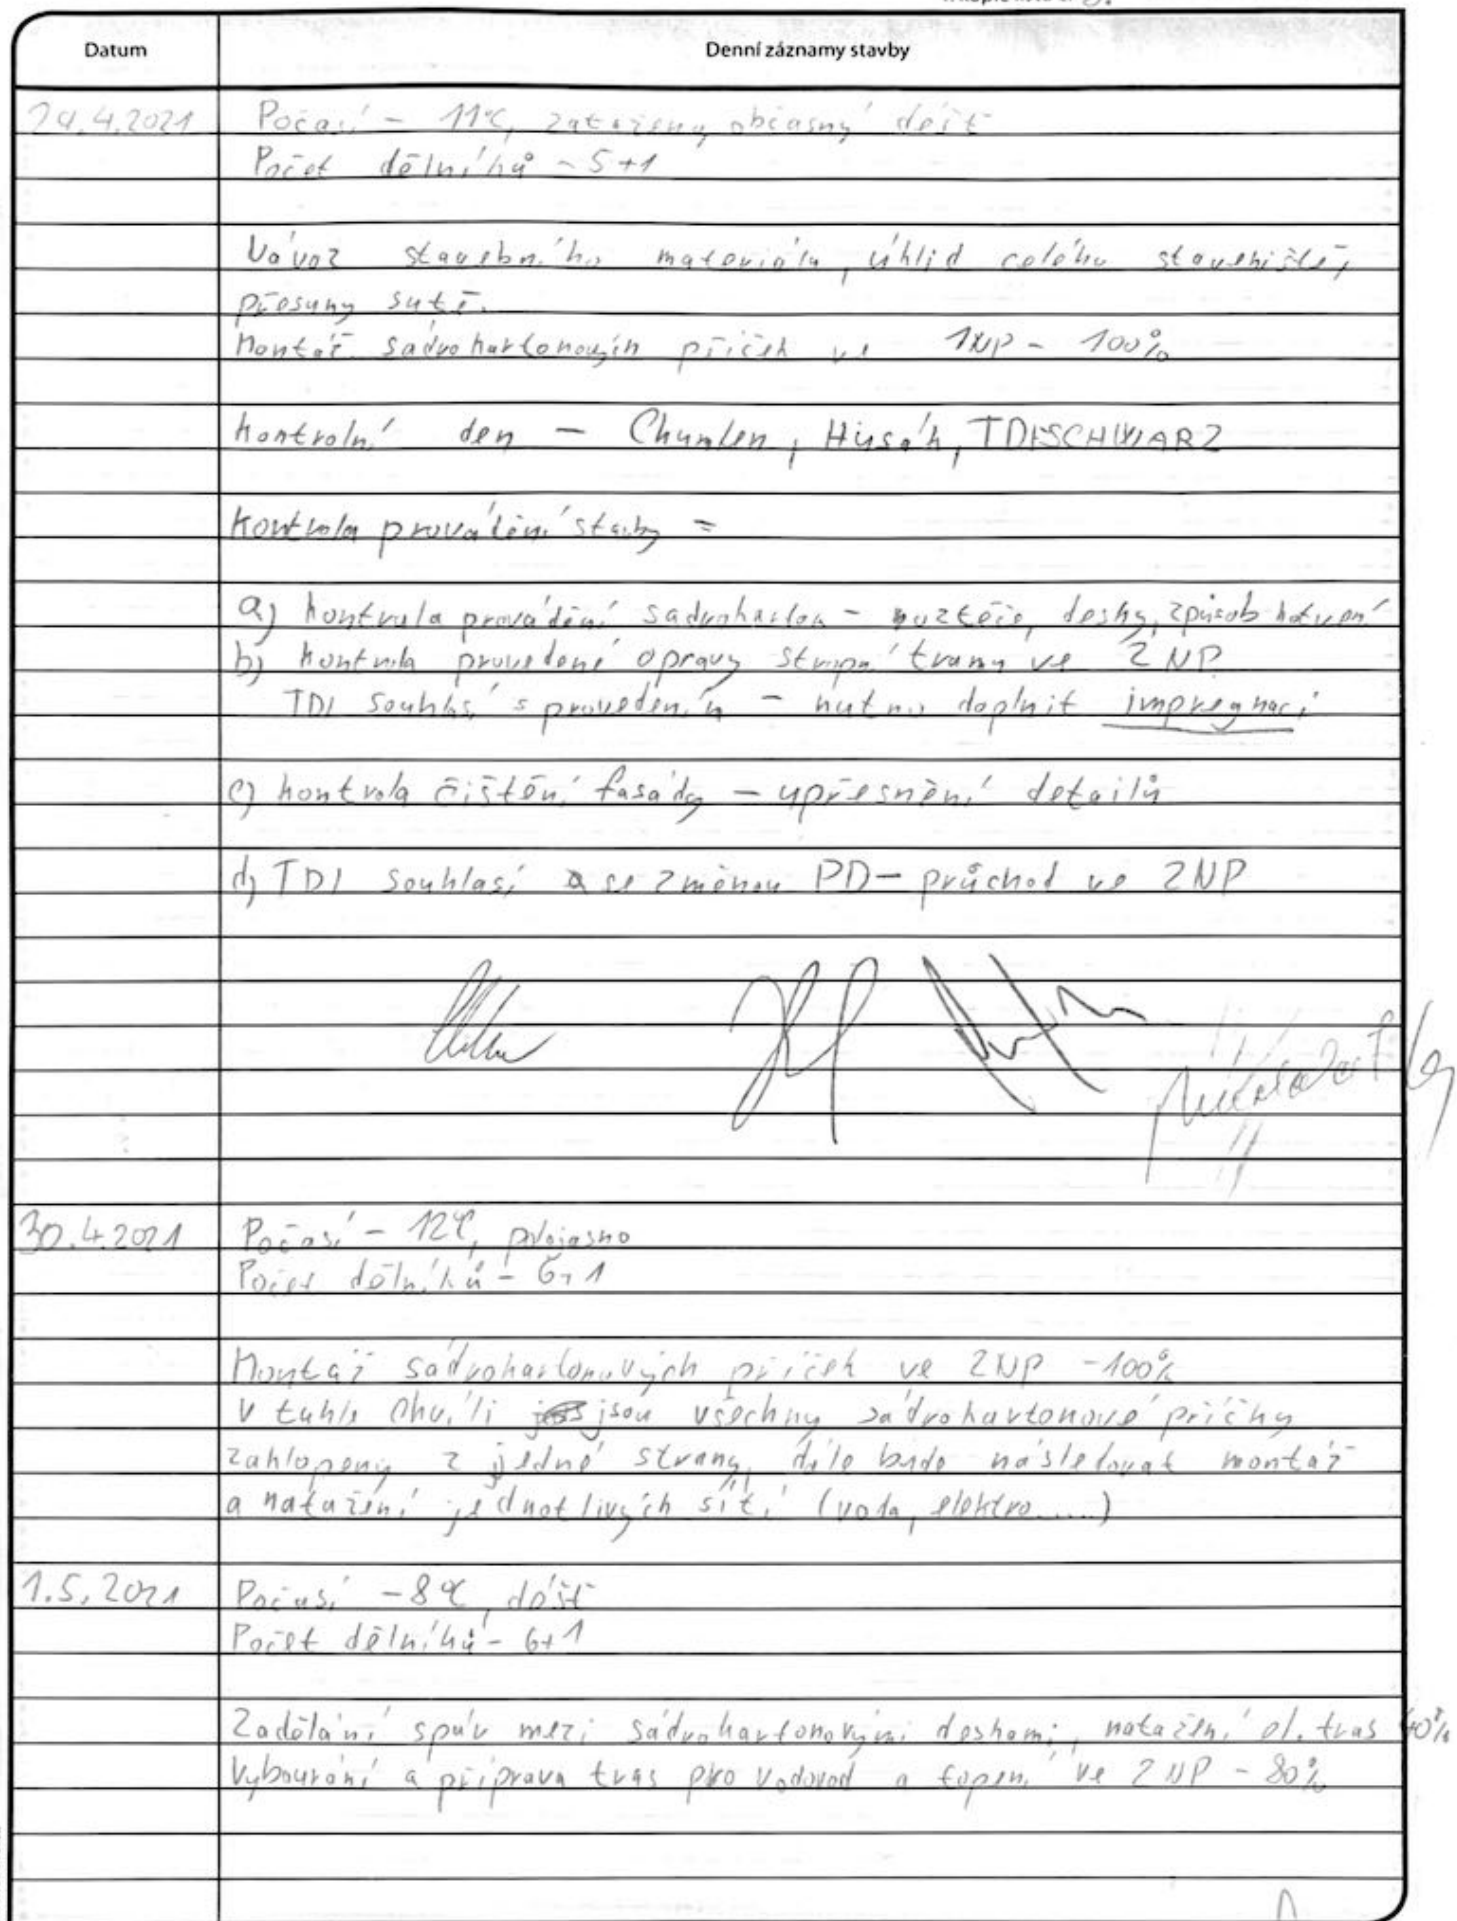 Datum
Denní záznamy stavby
29.4.2021
Počasí - 11°C, zatažený občasný déšť
Počet dělníků - 5+1
Návoz stavebního materiálu, úklid celého staveniště,
přesuny sutě.
Montáž sádrokartonových příček ve 1NP - 100%
kontrolní den - Husák, TDI SCHWARZ
kontrola provádění stavby =
a) kontrola provádění sádrokarton - rozteče, desky, způsob kotvení
b) kontrola provedené opravy stropní trámy ve 2NP
TDI souhlasí s provedením - nutno doplnit impregnaci
c) kontrola čištění fasády - upřesnění detailů
d) TDI souhlasí se změnou PD - průchod ve 2NP
30.4.2021
Počasí - 12°C, polojasno
Počet dělníků - 6+1
Montáž sádrokartonových příček ve 2NP - 100%
V tuhle chvíli jsou všechny sádrokartonové příčky
zaklopeny z jedné strany, dále bude následovat montáž
a natažení jednotlivých sítí (voda, elektro.....)
1.5.2021
Počasí - 8°C, déšť
Počet dělníků - 6+1
Zadělání spár mezi sádrokartonovými deskami, natažení el. tras 40%
Vybourání a příprava tras pro vodovod a topení ve 2NP - 80%